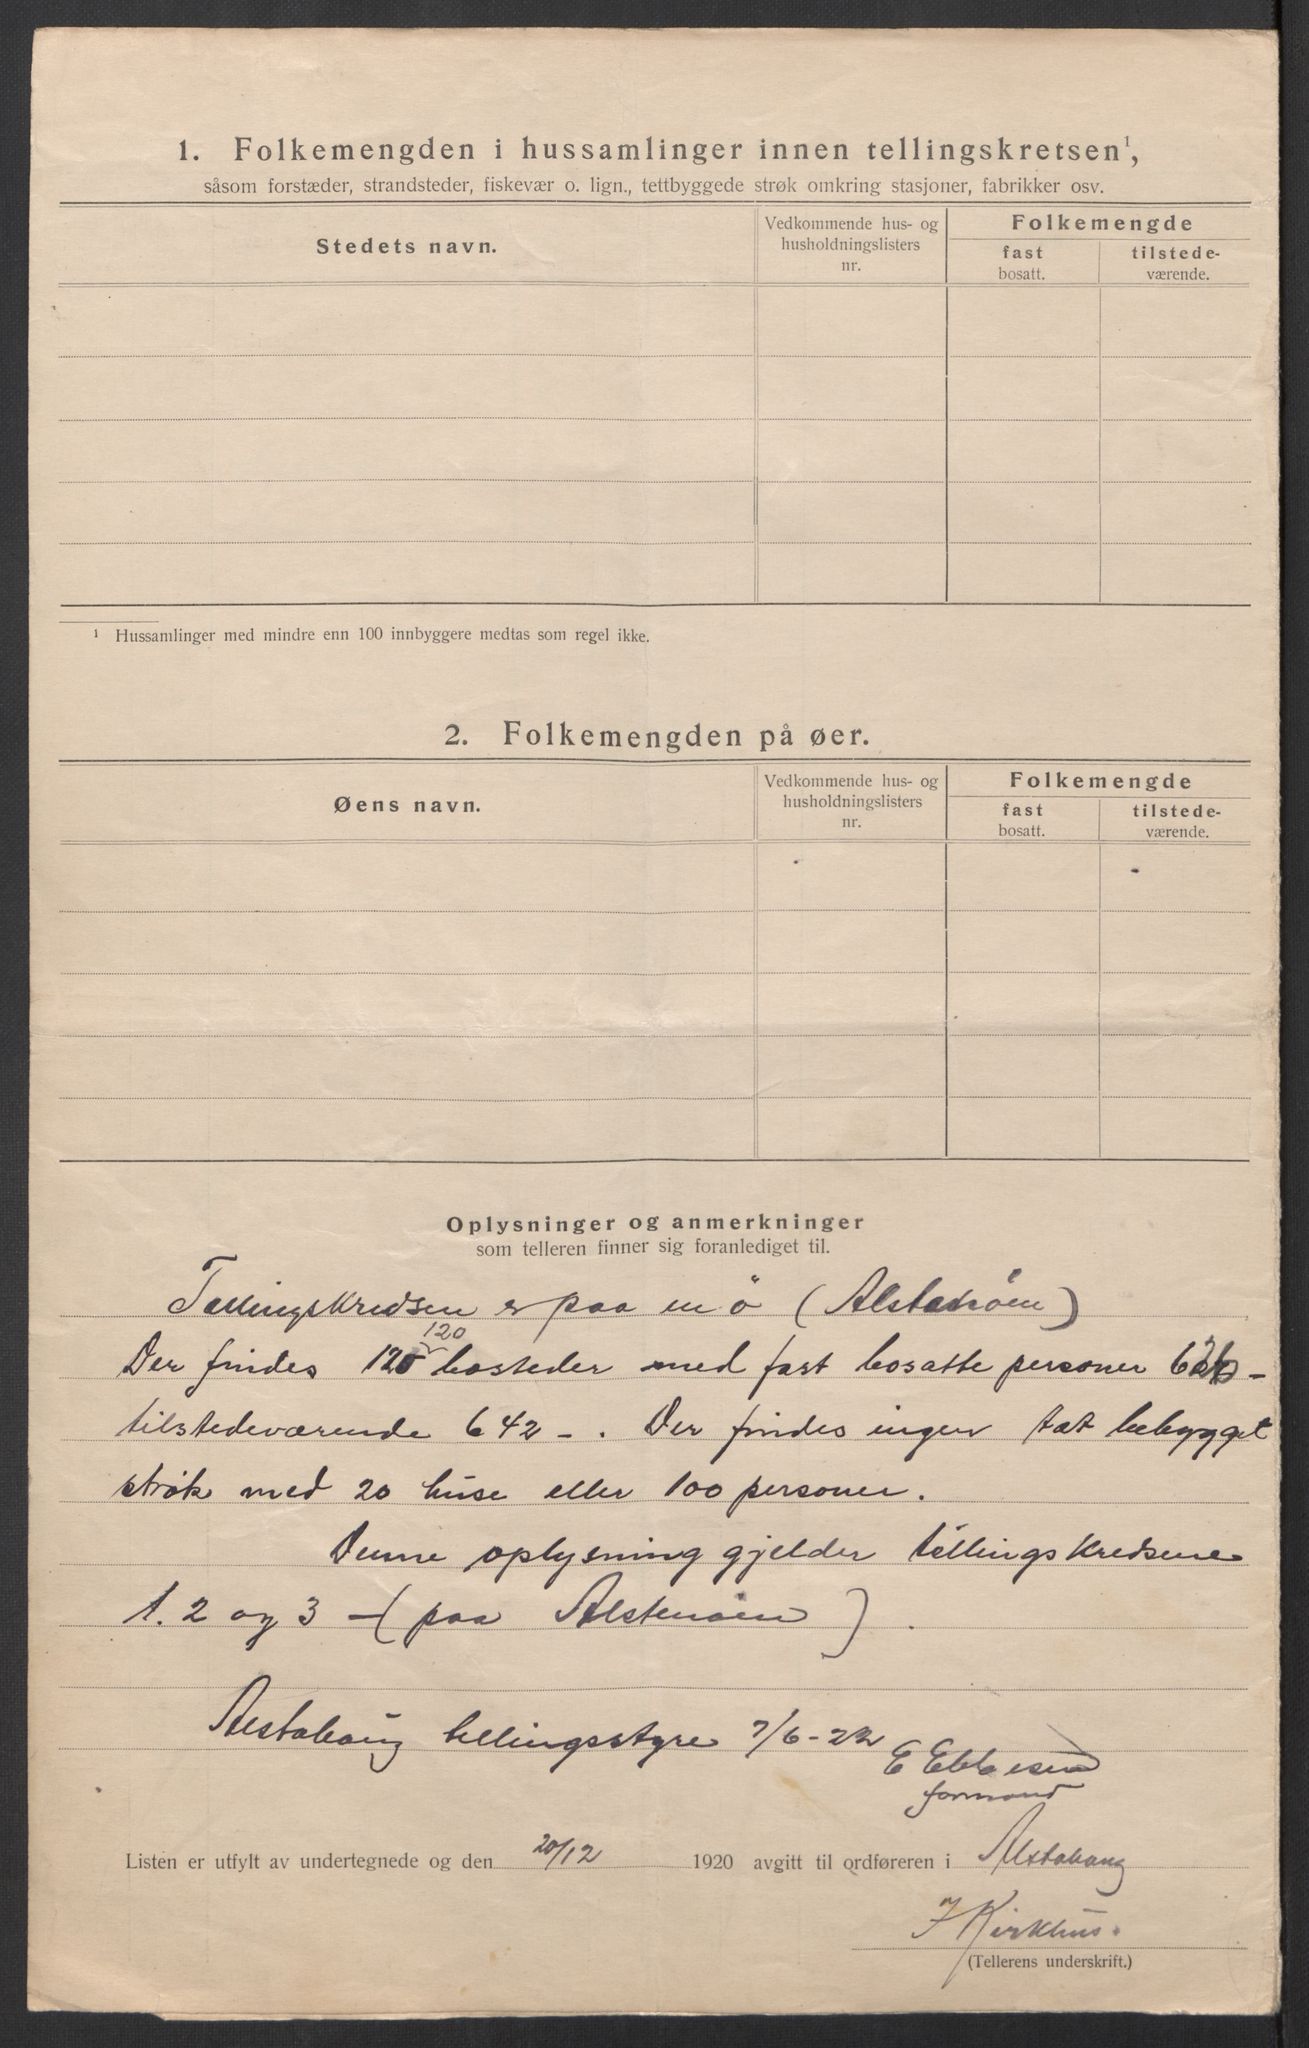 1. Folkemengden i hussamlinger innen tellingskretsen¹,
såsom forstæder, strandsteder, fiskevær o. lign., tettbyggede strøk omkring stasjoner, fabrikker osv.
Stedets navn.
Vedkommende hus- og
husholdningslisters
nr.
Folkemengde
fast
bosatt.
tilstede-
værende.
¹ Hussamlinger med mindre enn 100 innbyggere medtas som regel ikke.
2. Folkemengden på øer.
Øens navn.
Vedkommende hus- og
husholdningslisters
nr.
Folkemengde
fast
bosatt.
tilstede-
værende.
Oplysninger og anmerkninger
som telleren finner sig foranlediget til.
Tællingskredsen er paa en ö
120
Der findes bosteder med fast bosatte personer
tilstedeværende 642 -. Der findes ingen tæt bebygget
strøk med 20 huse eller 100 personer.
Denne oplysning gjelder tællingskredsene
1. 2 og 3 - (paa Alstenøen).
Alstahaug tellingsstyre 7/6-22
E Ebbesen
formand
Listen er utfylt av undertegnede og den 20/12 1920 avgitt til ordføreren i Alstahaug
J Kirkhus.
(Tellerens underskrift.)